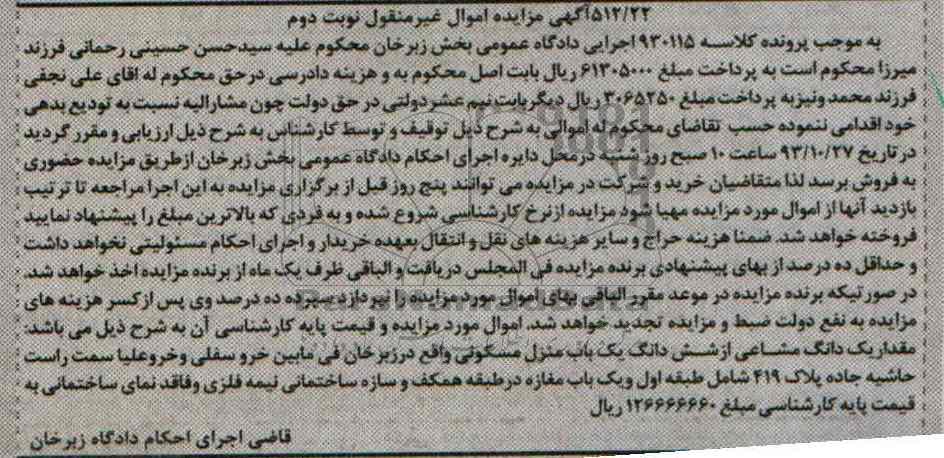 ۵۱۲/۲۲آگهی مزایده اموال غیرمنقول نوبت دوم
به موجب پرونده کلاسه ۹۳۰۱۱۵ اجرایی دادگاه عمومی بخش زبرخان محکوم علیه سیدحسن حسینی رحمانی فرزند
میرزا محکوم است به پرداخت مبلغ ۶۱۳۰۵۰۰۰ ریال بابت اصل محکوم به و هزینه دادرسی درحق محکوم له اقای علی نجفی
فرزند محمد ونیزبه پرداخت مبلغ ۳۰۶۵۲۵۰ ریال دیگربابت نیم عشردولتی در حق دولت چون مشارالیه نسبت به تودیع بدهی
خود اقدامی ننموده حسب تقاضای محکوم له اموالی به شرح ذیل توقیف و توسط کارشناس به شرح ذیل ارزیابی و مقرر گردید
در تاریخ ۹۳/۱۰/۲۷ ساعت ۱۰ صبح روز شنبه درمحل دایره اجرای احکام دادگاه عمومی بخش زبرخان ازطریق مزایده حضوری
به فروش برسد لذا متقاضیان خرید و شرکت در مزایده می توانند پنج روز قبل از برگزاری مزایده به این اجرا مراجعه تا ترتیب
بازدید آنها از اموال مورد مزایده مهیا شود مزایده ازنرخ کارشناسی شروع شده و به فردی که بالاترین مبلغ را پیشنهاد نمایید
فروخته خواهد شد. ضمنا هزینه حراج و سایر هزینه های نقل و انتقال بعهده خریدار و اجرای احکام مسئولیتی نخواهد داشت
و حداقل ده درصد از بهای پیشنهادی برنده مزایده فی المجلس دریافت و الباقی ظرف یک ماه از برنده مزایده اخذ خواهد شد.
در صورتیکه برنده مزایده در موعد مقرر الباقی بهای اموال مورد مزایده را نپردازد سپرده ده درصد وی پس از کسر هزینه های
مزایده به نفع دولت ضبط و مزایده تجدید خواهد شد. اموال مورد مزایده و قیمت پایه کارشناسی آن به شرح ذیل می باشد:
مقداریک دانگ مشاعی ازشش دانگ یک باب منزل مسکونی واقع درزبرخان فی مابین خرو سفلی وخروعلیا سمت راست
حاشیه جاده پلاک ۴۱۹ شامل طبقه اول ویک باب مغازه درطبقه همکف و سازه ساختمانی نیمه فلزی وفاقد نمای ساختمانی به
قیمت پایه کارشناسی مبلغ ۱۲۶۶۶۶۶۶۰ ریال
قاضی اجرای احکام دادگاه زبرخان